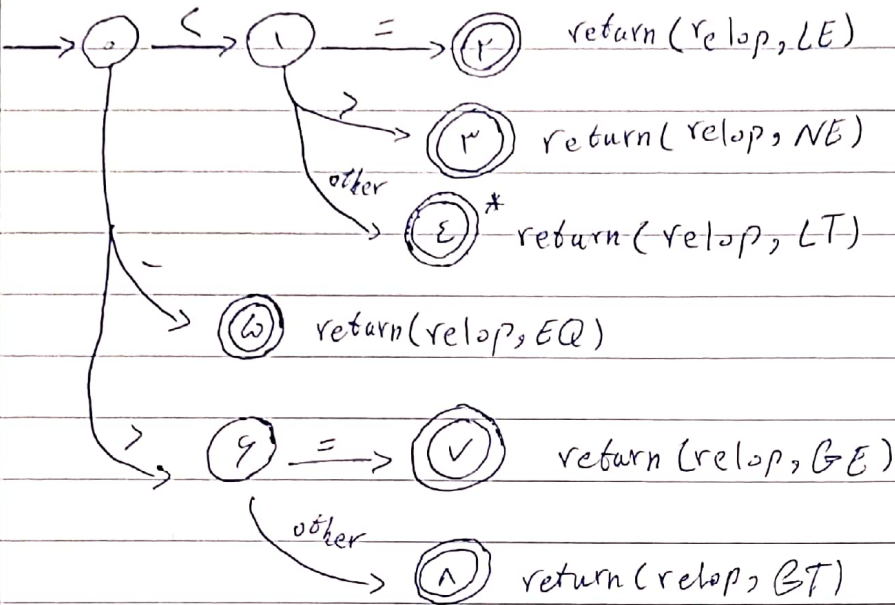 ۰ < ۱ = ۲ return(relop, LE)
> ۳ return(relop, NE)
other ۴ * return(relop, LT)
= ۵ return(relop, EQ)
> ۶ = ۷ return(relop, GE)
other ۸ return(relop, GT)